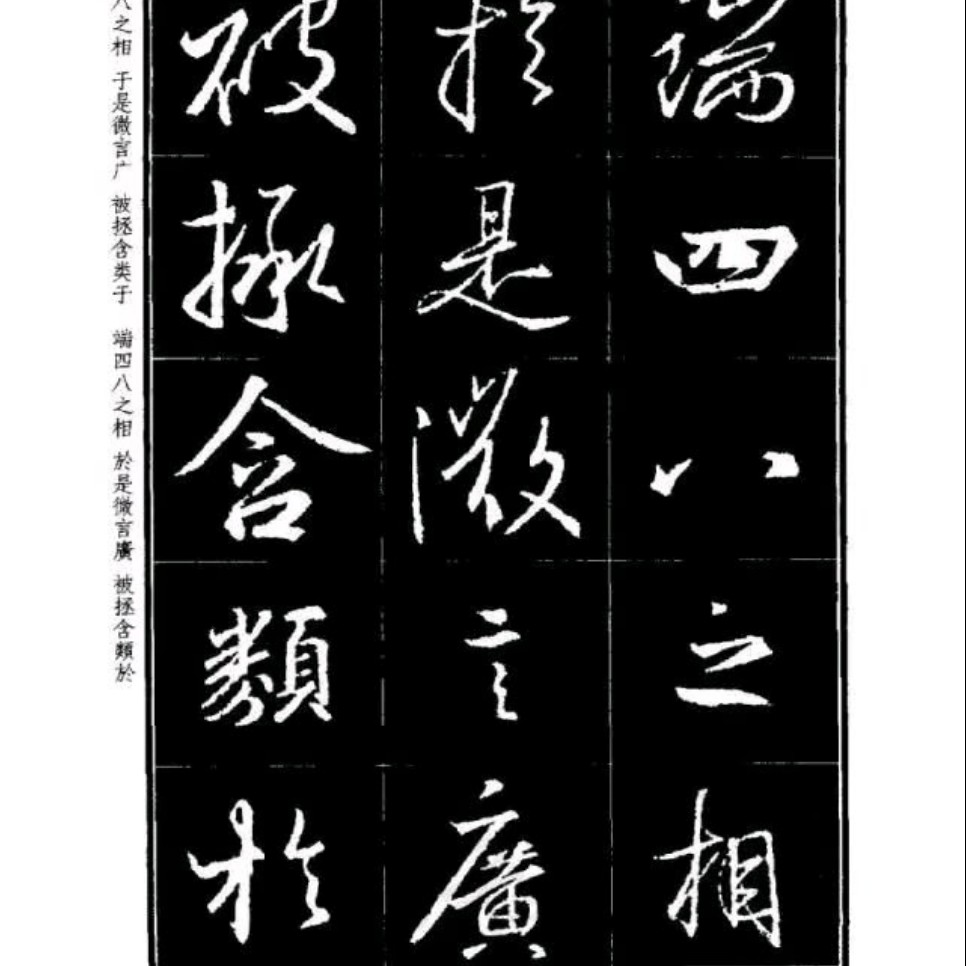 端四八之相
於是微言廣
被拯含類於
八之相 于是微言广 被拯含类于 端四八之相 於是微言廣 被拯含類於